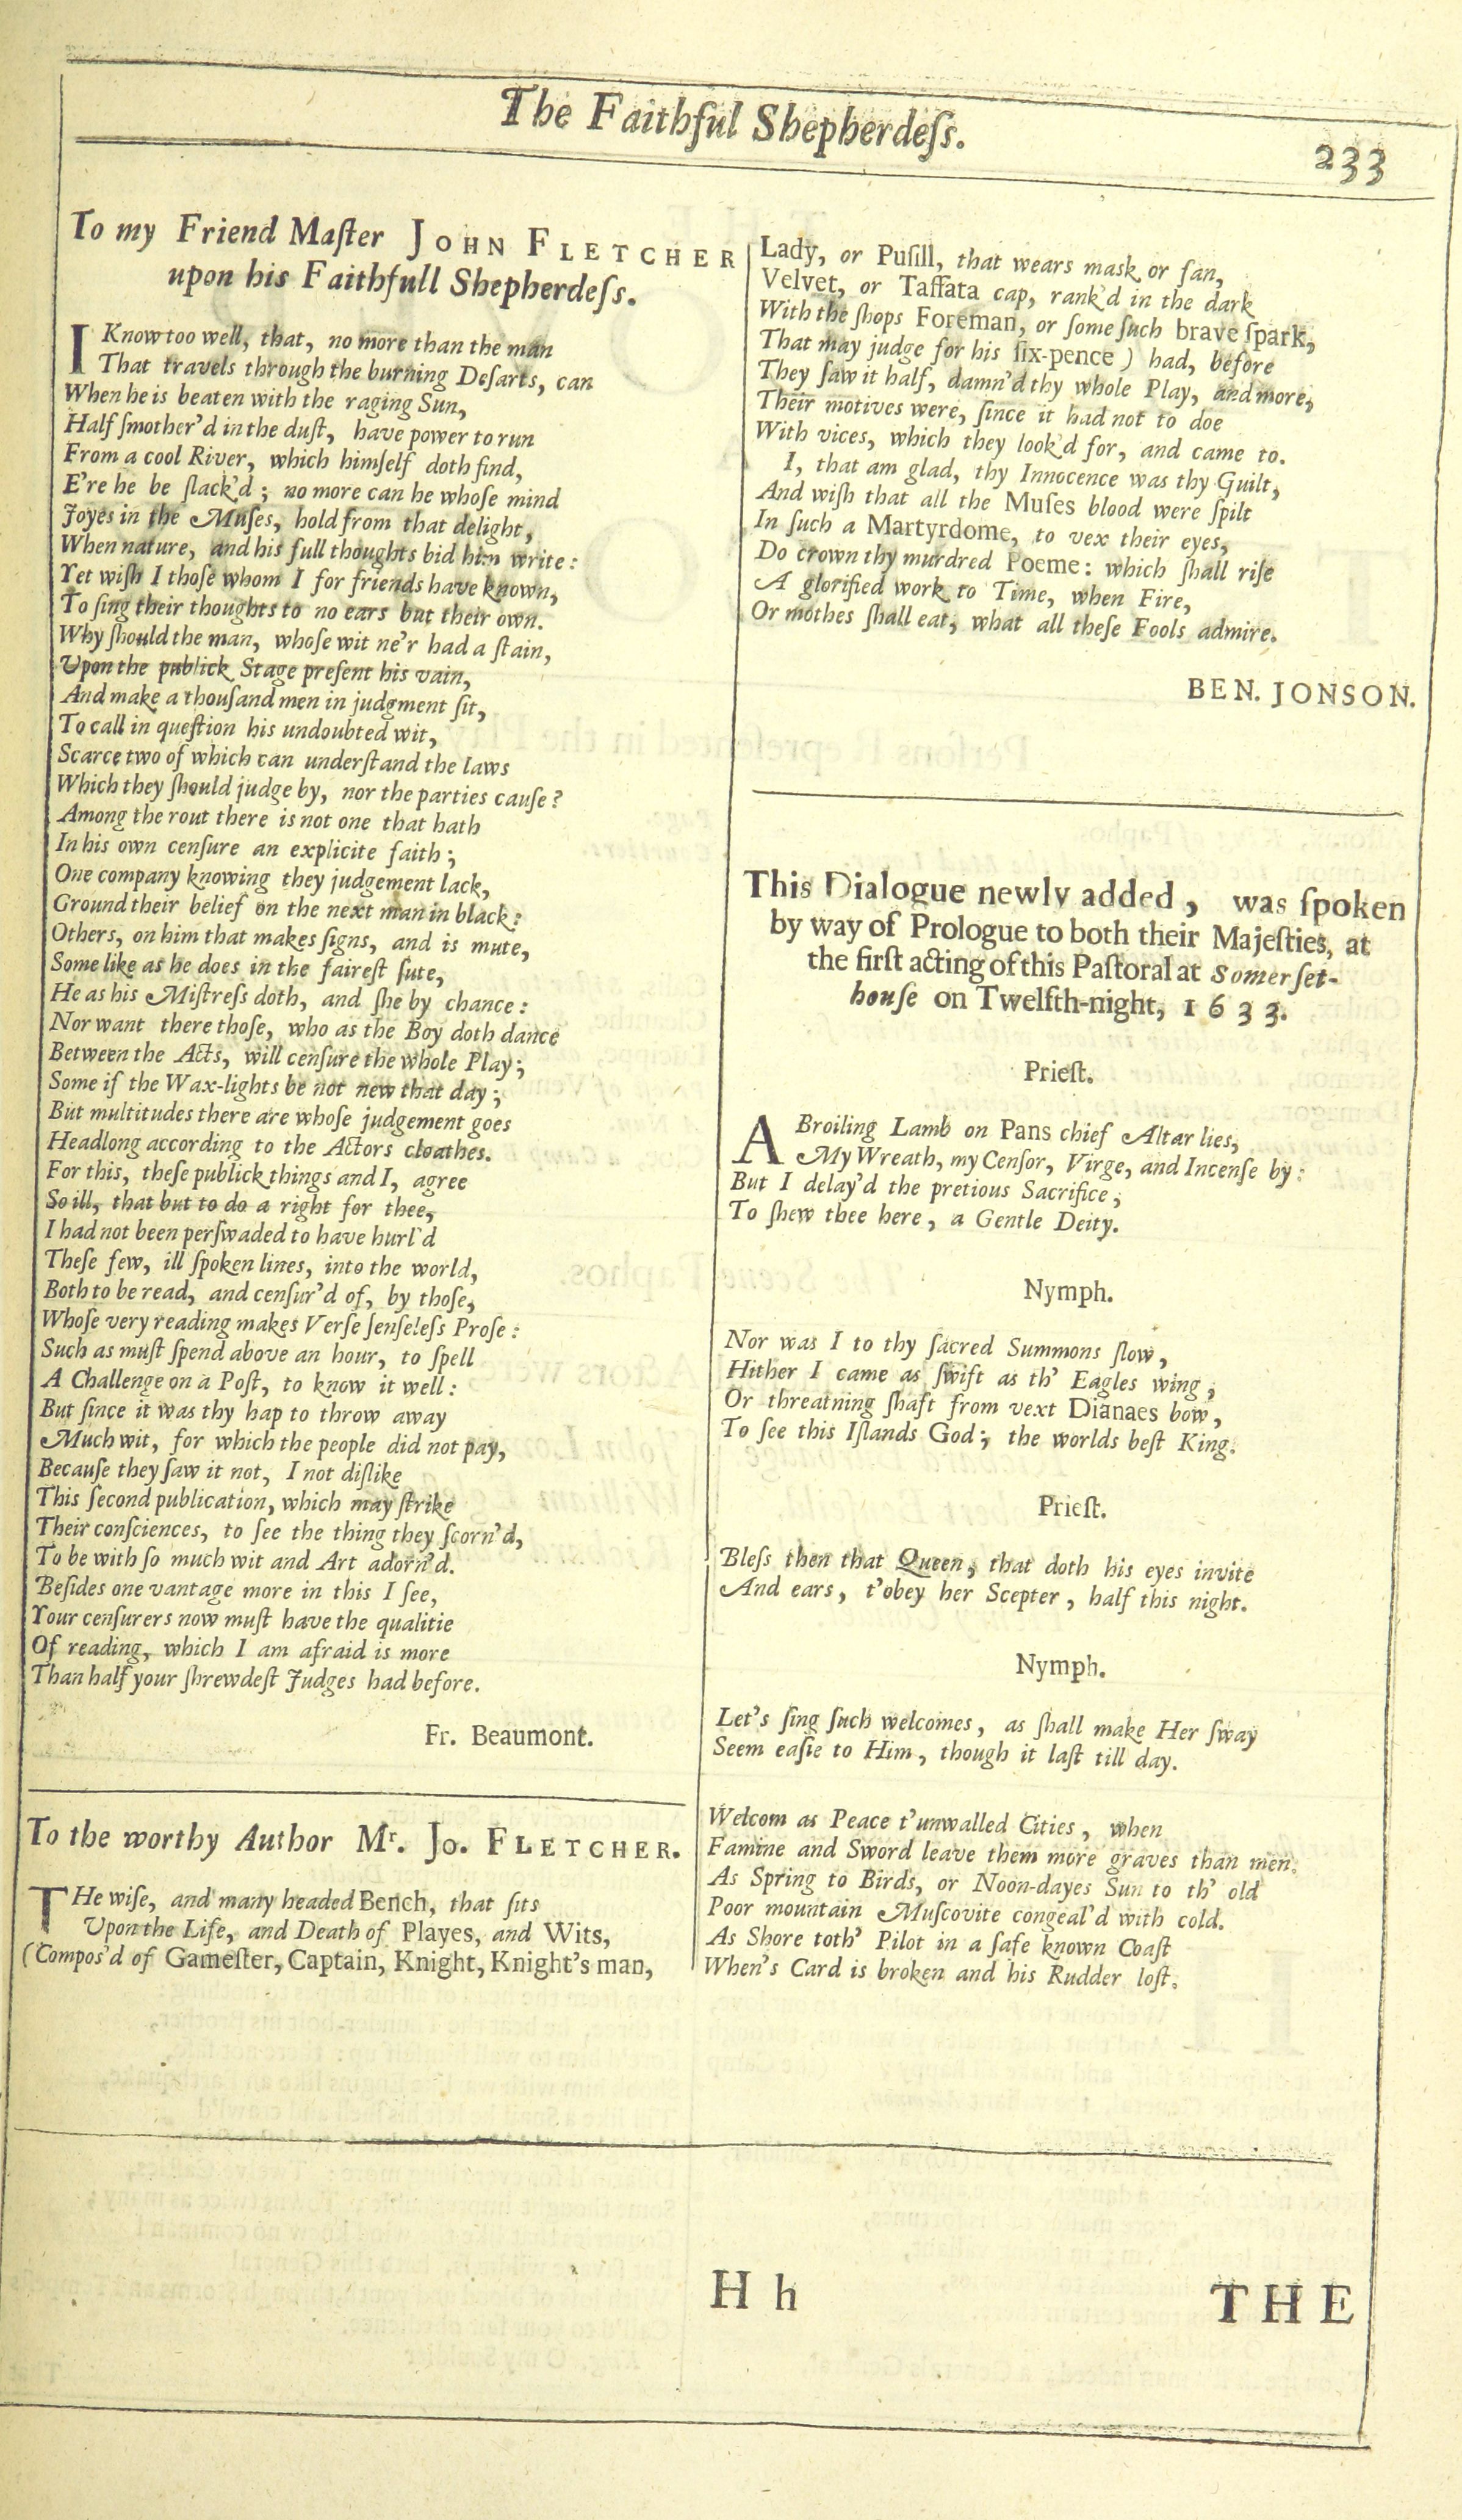 The Faithful Shepherdeſs.
233
To my Friend Maſter JOHN FLETCHER
upon his Faithfull Shepherdeſs.
I Know too well, that, no more than the man
That travels through the burning Deſarts, can
When he is beaten with the raging Sun,
Half ſmother'd in the duſt, have power to run
From a cool River, which himſelf doth find,
E're he be ſlack'd; no more can he whoſe mind
Joyes in the Muſes, hold from that delight,
When nature, and his full thoughts bid him write:
Yet wiſh I thoſe whom I for friends have known,
To ſing their thoughts to no ears but their own.
Why ſhould the man, whoſe wit ne'r had a ſtain,
Upon the publick Stage preſent his vain,
And make a thouſand men in judgment ſit,
To call in queſtion his undoubted wit,
Scarce two of which can underſtand the laws
Which they ſhould judge by, nor the parties cauſe?
Among the rout there is not one that hath
In his own cenſure an explicite faith;
One company knowing they judgement lack,
Ground their belief on the next man in black:
Others, on him that makes ſigns, and is mute,
Some like as he does in the faireſt ſute,
He as his Miſtreſs doth, and ſhe by chance:
Nor want there thoſe, who as the Boy doth dance
Between the Acts, will cenſure the whole Play;
Some if the Wax-lights be not new that day;
But multitudes there are whoſe judgement goes
Headlong according to the Actors cloathes.
For this, theſe publick things and I, agree
So ill, that but to do a right for thee,
I had not been perſwaded to have hurl'd
Theſe few, ill ſpoken lines, into the world,
Both to be read, and cenſur'd of, by thoſe,
Whoſe very reading makes Verſe ſenſeleſs Proſe:
Such as muſt ſpend above an hour, to ſpell
A Challenge on a Poſt, to know it well:
But ſince it was thy hap to throw away
Much wit, for which the people did not pay,
Becauſe they ſaw it not, I not diſlike
This ſecond publication, which may ſtrike
Their conſciences, to ſee the thing they ſcorn'd,
To be with ſo much wit and Art adorn'd.
Beſides one vantage more in this I ſee,
Your cenſurers now muſt have the qualitie
Of reading, which I am afraid is more
Than half your ſhrewdeſt Judges had before.
Fr. Beaumont.
To the worthy Author Mr. Jo. FLETCHER.
THe wiſe, and many headed Bench, that ſits
Upon the Life, and Death of Playes, and Wits,
(Compos'd of Gameſter, Captain, Knight, Knight's man,
Lady, or Puſill, that wears mask or fan,
Velvet, or Taffata cap, rank'd in the dark
With the ſhops Foreman, or ſome ſuch brave ſpark,
That may judge for his ſix-pence) had, before
They ſaw it half, damn'd thy whole Play, and more,
Their motives were, ſince it had not to doe
With vices, which they look'd for, and came to.
I, that am glad, thy Innocence was thy Guilt,
And wiſh that all the Muſes blood were ſpilt
In ſuch a Martyrdome, to vex their eyes,
Do crown thy murdred Poeme: which ſhall riſe
A glorified work to Time, when Fire,
Or mothes ſhall eat, what all theſe Fools admire.
BEN. JONSON.
This Dialogue newly added, was ſpoken
by way of Prologue to both their Majeſties, at
the firſt acting of this Paſtoral at Somerſet-
houſe on Twelfth-night, 1633.
Prieſt.
A Broiling Lamb on Pans chief Altar lies,
My Wreath, my Cenſor, Virge, and Incenſe by:
But I delay'd the pretious Sacrifice;
To ſhew thee here, a Gentle Deity.
Nymph.
Nor was I to thy ſacred Summons ſlow,
Hither I came as ſwift as th' Eagles wing;
Or threatning ſhaft from vext Dianaes bow,
To ſee this Iſlands God; the worlds beſt King.
Prieſt.
Bleſs then that Queen, that doth his eyes invite
And ears, t'obey her Scepter, half this night.
Nymph.
Let's ſing ſuch welcomes, as ſhall make Her ſway
Seem eaſie to Him, though it laſt till day.
Welcom as Peace t'unwalled Cities, when
Famine and Sword leave them more graves than men.
As Spring to Birds, or Noon-dayes Sun to th' old
Poor mountain Muſcovite congeal'd with cold.
As Shore toth' Pilot in a ſafe known Coaſt
When's Card is broken and his Rudder loſt.
H h
THE